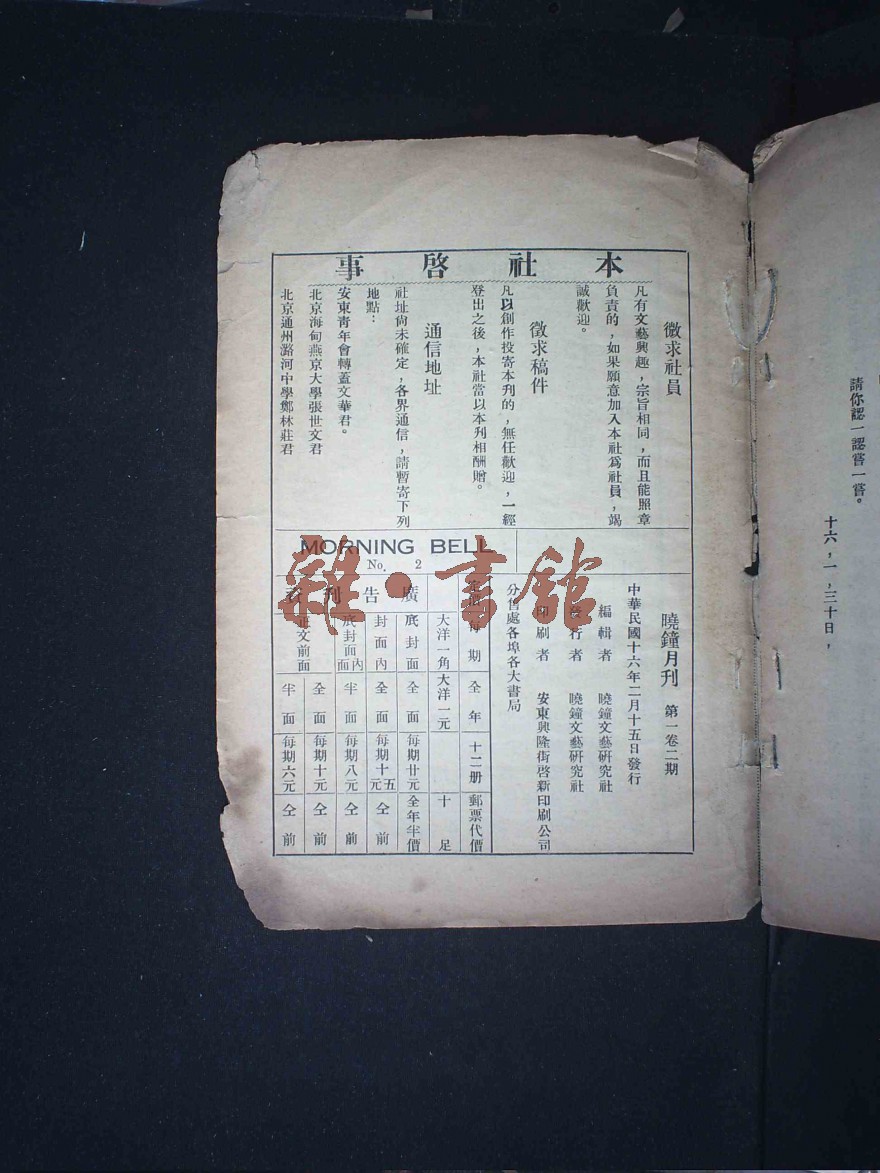 請你認一認嘗一嘗。
十六,一,三十日,
本社啓事
徵求社員
凡有文藝興趣,宗旨相同,而且能照章
負責的,如果願意加入本社爲社員,竭
誠歡迎。
徵求稿件
凡以創作投寄本刊的,無任歡迎,一經
登出之後,本社當以本刊相酬贈。
通信地址
社址尙未確定,各界通信,請暫寄下列
地點:
安東靑年會轉蓋文華君。
北京海甸燕京大學張世文君
北京通州潞河中學鄭林莊君
MORNING BELL
No. 2
曉鐘月刊 第一卷二期
中華民國十六年二月十五日發行
編輯者 曉鐘文藝硏究社
發行者 曉鐘文藝硏究社
印刷者 安東興隆街啓新印刷公司
分售處各埠各大書局
定價 每期 全年 十二册 郵票代價
大洋一角 大洋一元 十足
廣告刊
底封面 全面 每期廿元 全年半價
封面內 全面 每期十五元 仝前
底封面內面 半面 每期八元 仝前
正文前面 全面 每期十元 仝前
半面 每期六元 仝前
雜·書館